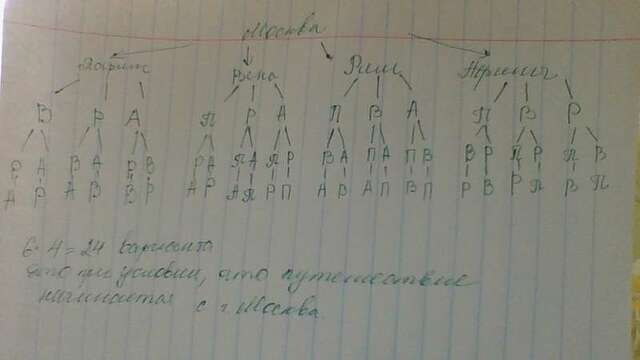 Москва
Париж Вена Рим
В Р А П Р А П В А П В Р
Р А В А Р В Р А П А П Р В А П А П В В Р П Р П В
А Р А В В Р А Р А П Р П А В А П В П Р В Р П В П
6·4=24 варианта
это при условии, что путешествие
начинается с г. Москва.